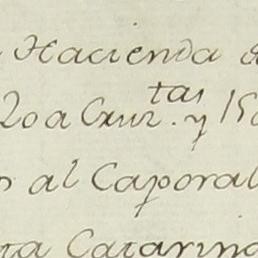 Hacienda
20 a Cruz.tas y 15
al Caporal
Catarina